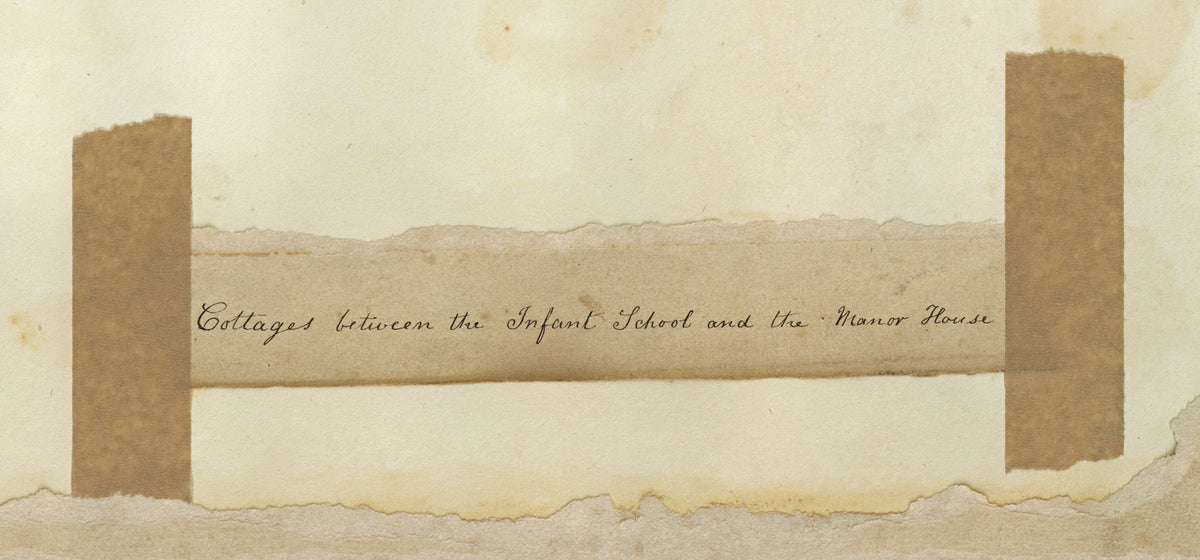 Cottages between the Infant School and the Manor House